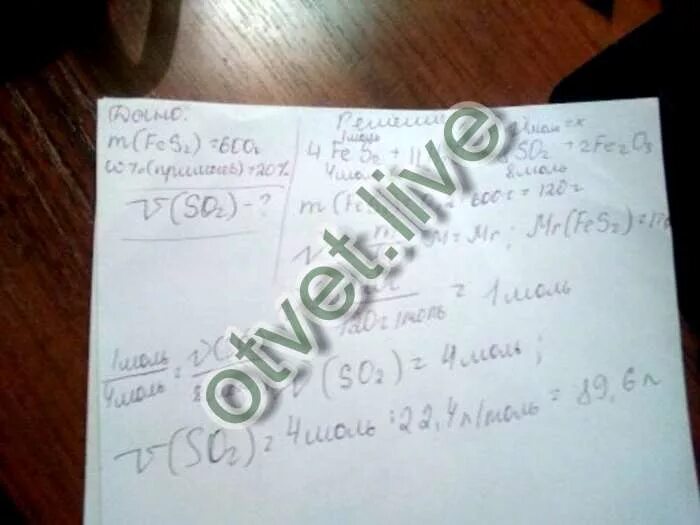 Дано:
m(FeS₂)=600г
W%(примесь)=20%
V(SO₂)-?
Решение
1моль
4FeS₂ + 11 SO₂ + 2Fe₂O₃
4моль 8моль
m(Fe 600г = 120г
M=Mr; Mr(FeS₂)=
120г/моль = 1моль
1моль
4моль = V( V(SO₂)= 4моль;
V(SO₂)= 4моль : 22,4л/моль = 89,6л
otvet.live